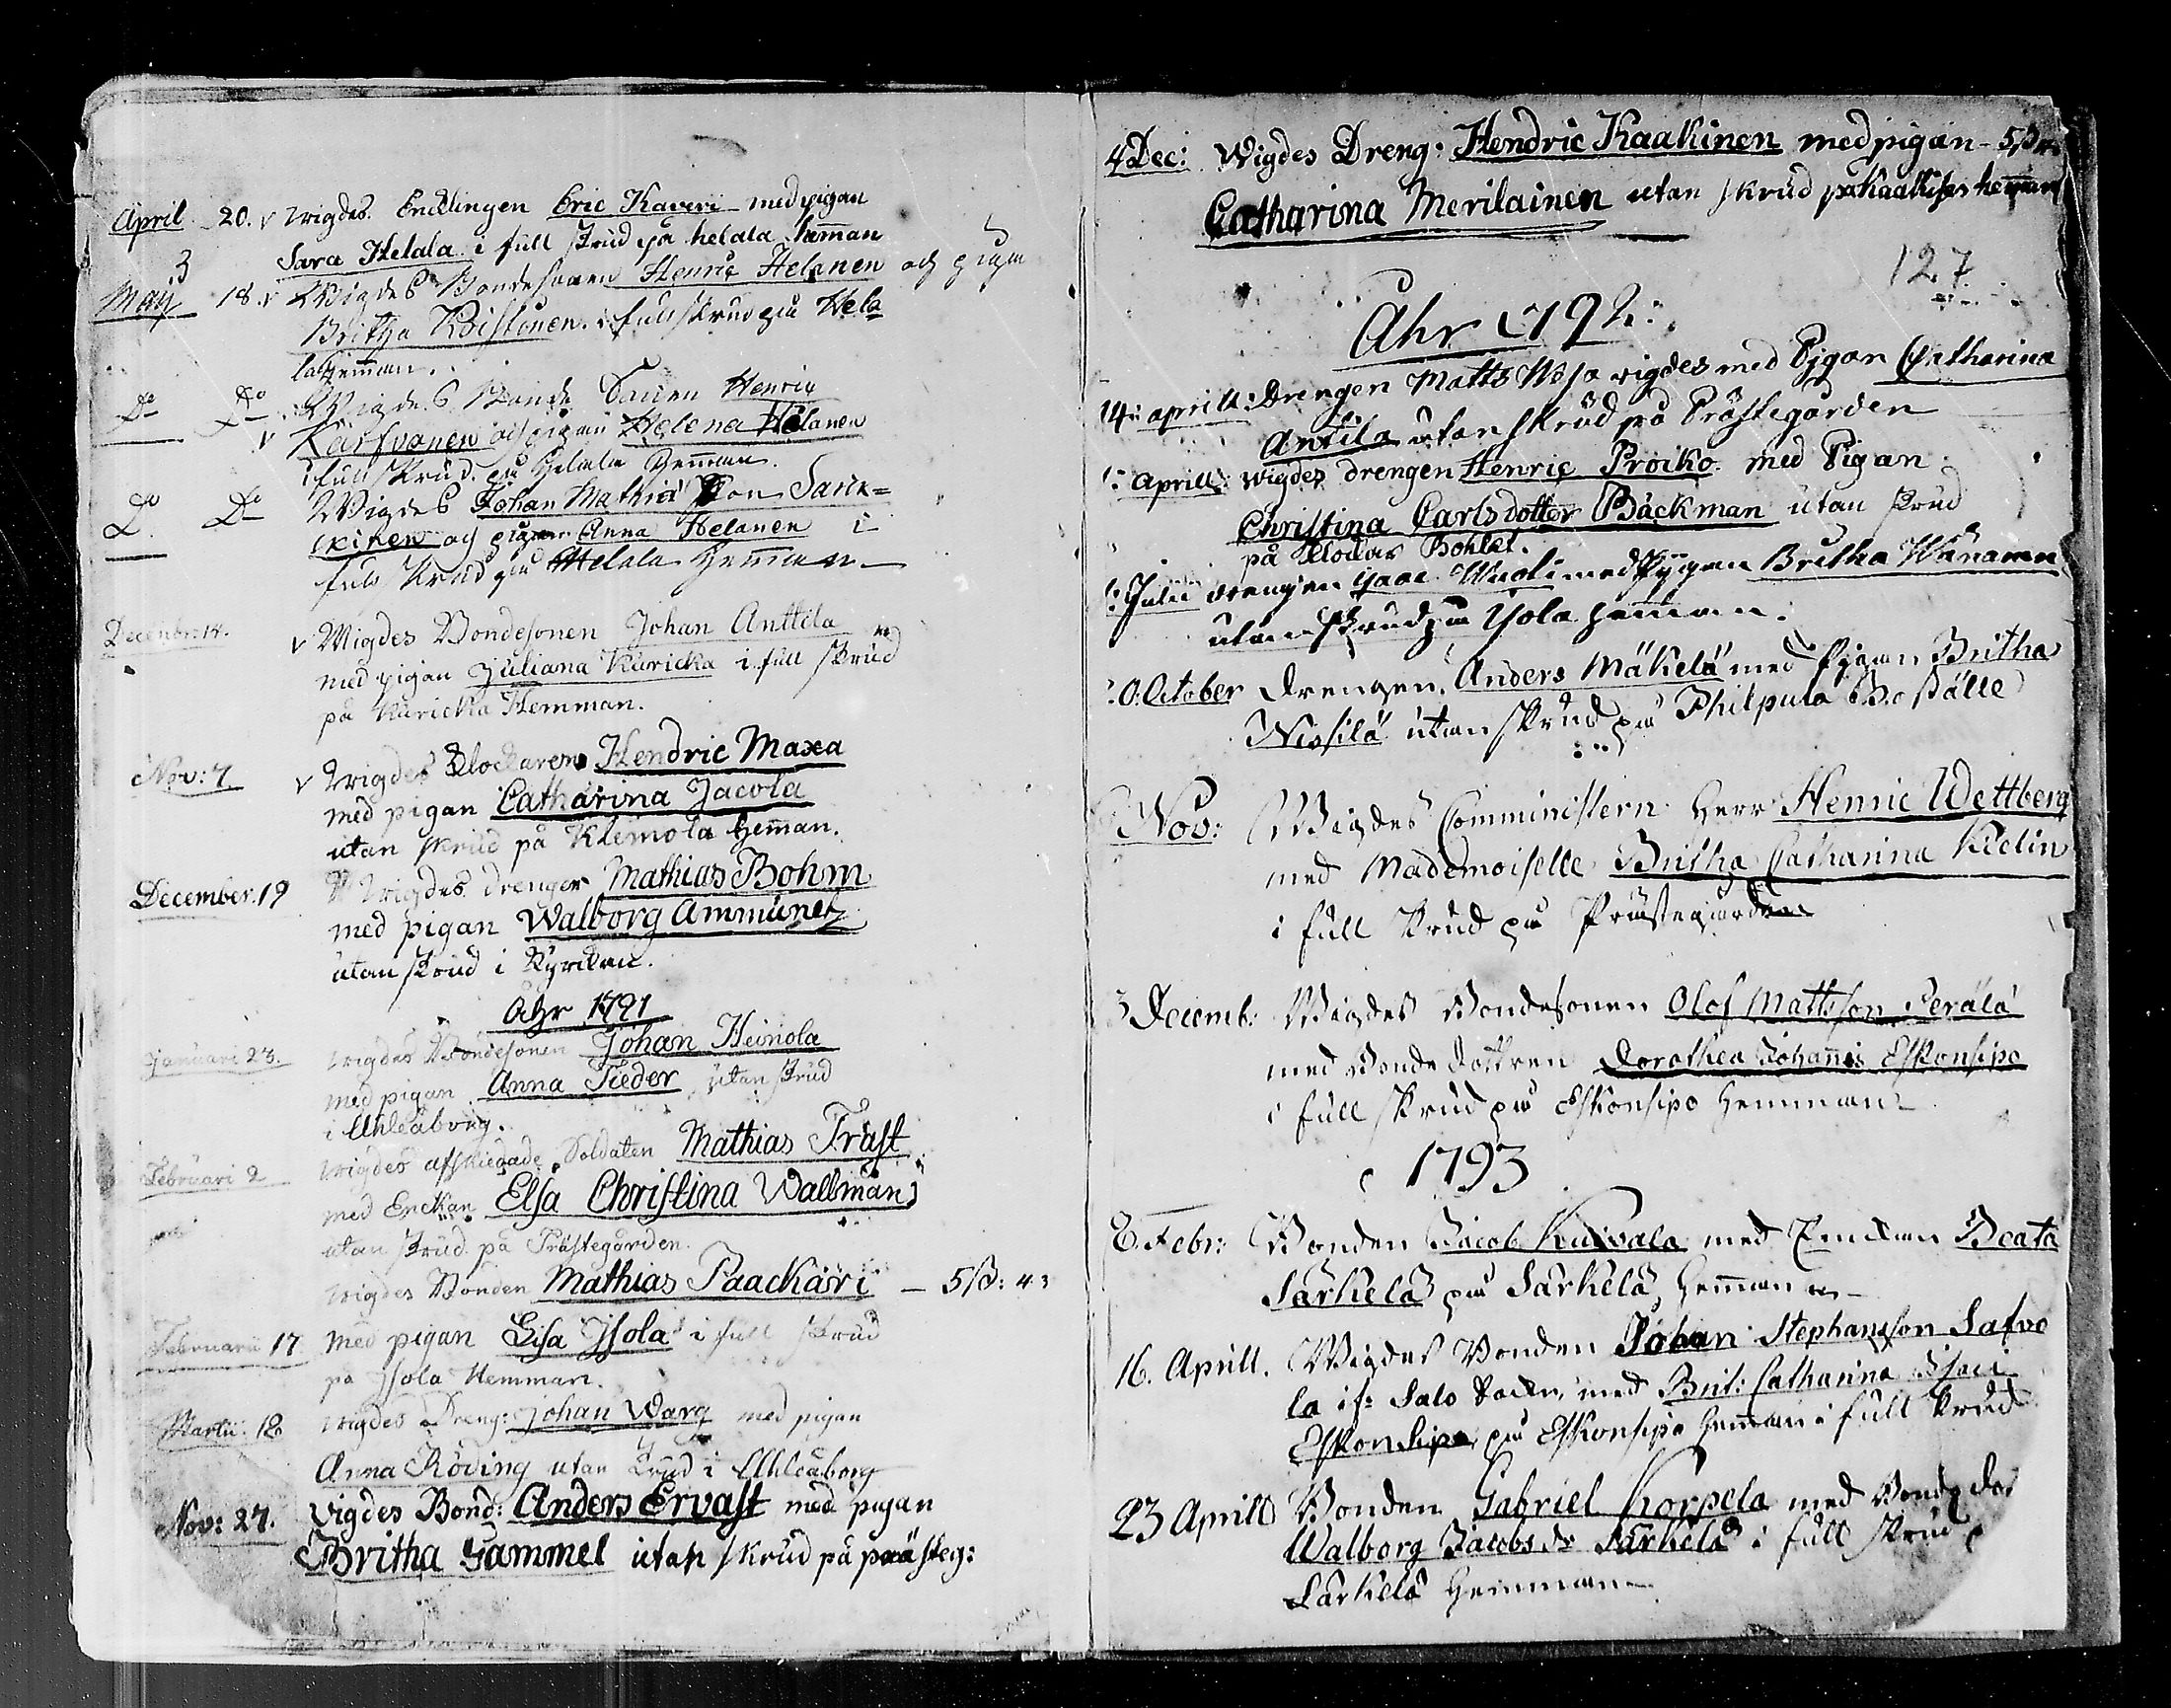 April 20. v wigdes Enklingen Eric Kaveri med pigan
Sara Helala i full skrud på helala hemman
3
Maij 18. v Wigdes Bondesonen Henric Helanen och pigan
Britha Koistonen i full skrud på Hela
la hemman.
Do Do Wigdes Bonde Sonen Henric
v Karfvonen och pigan Helena Helanen
i full skrud på Helala Hemman.
Do Do Wigdes Johan Mathias Son Sark=
kinen och pigan Anna Helanen i
full skrud på Helala Hemman
Decemb: 14. v Wigdes Bondesonen Johan Anttila
med pigan Juliana Kuricka i full skrud
på Kuricka Hemman.
Nov: 7. v wigdes Klockaren Hendric Maxa
med pigan Catharina Jacola
utan skrud på Klemola hemman.
December. 19 wigdes drengen Mathias Bohm
med pigan Walborg Ammunet
utan skrud i Kyrckan.
Ahr 1791
Januari 23. wigdes Bondesonen Johan Heinola
med pigan Anna Tieder utan skrud
i Uhleåborg.
Februari 2 wigdes afskiedade Soldaten Mathias Frast
med Enckan Elsa Christina Wallman
utan skrud på Prästegården.
wigdes Bonden Mathias Paackari — 5 ß: 4:
Februarii 17 med pigan Lisa Isola i full skrud
på Isola Hemman.
Martii. 18 wigdes Dreng: Johan Warg med pigan
Anna Röding utan skrud i Uhleåborg
Nov: 27. Vigdes Bond: Anders Ervast med pigan
Britha Gammel utan skrud på prästeg:
4 Dec: Wigdes Dreng: Hendric Kaakinen med pigan - 5 ß
Catharina Merilainen utan skrud på Kaakises hemman
127
Ahr 1792:
14: aprill: Drengen Matts Wisa vigdes med Pigan Catharina
Antila utan skrud på Prästegården
aprill: wigdes drengen Henric Proiko med Pigan
Christina Carlsdotter Bäckman utan skrud
på Klockar Bohlet.
Julii drengen Isaac Wuoti med Pygan Britha Wänänen
utan skrud på Ysola hemman.
October drengen Anders Mäkelä med Pigan Britha
Nissilä utan skrud på Philpula Boställe
Nov: Wigdes Comministern Herr Henric Wettberg
med Mademoiselle Britha Catharina Kielin
i full skrud på Prästegården
3 Decemb: Wigdes Bondesonen Olof Mattsson Perälä
med Bonde dottren Dorothea Johannis Eskonsipo
i full skrud på Eskonsipo Hemman
1793
8. Febr: Bonden Jacob Kuivala med Enckan Beata
Särkelä på Särkelä Hemman
16. Aprill. Wigdes Bonden Johan Stephansson Safvo
la if: Salo Sockn, med Brit: Catharina Isaci
Eskonsipo på Eskonsipo Hemman i full skrud
23 Aprill Bonden Gabriel Korpela med Bonde do
Walborg Jacobs dr Särkelä i full skrud
Särkelä Hemman